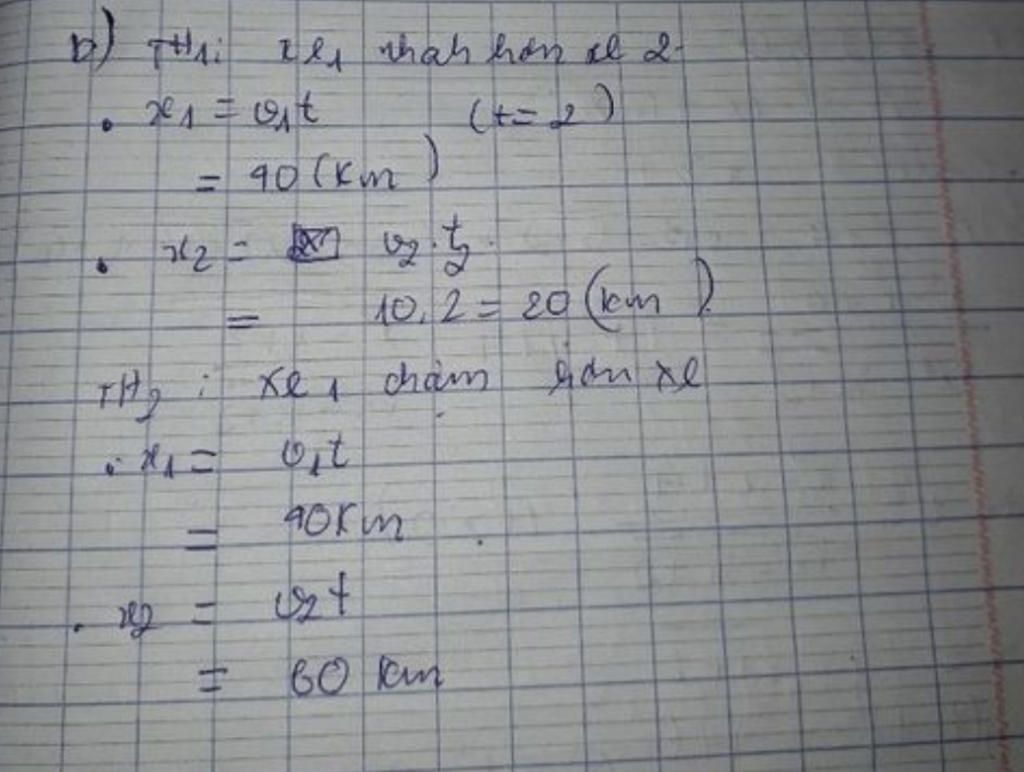 b) TH1: xe1 nhanh hơn xe 2
• x1 = v1t (t = 2)
= 40 (km)
• x2 = v2.t2
= 10.2 = 20 (km)
TH2 : xe 1 chậm hơn xe
• x1 = v1t
= 40 km
• x2 = v2t
= 60 km